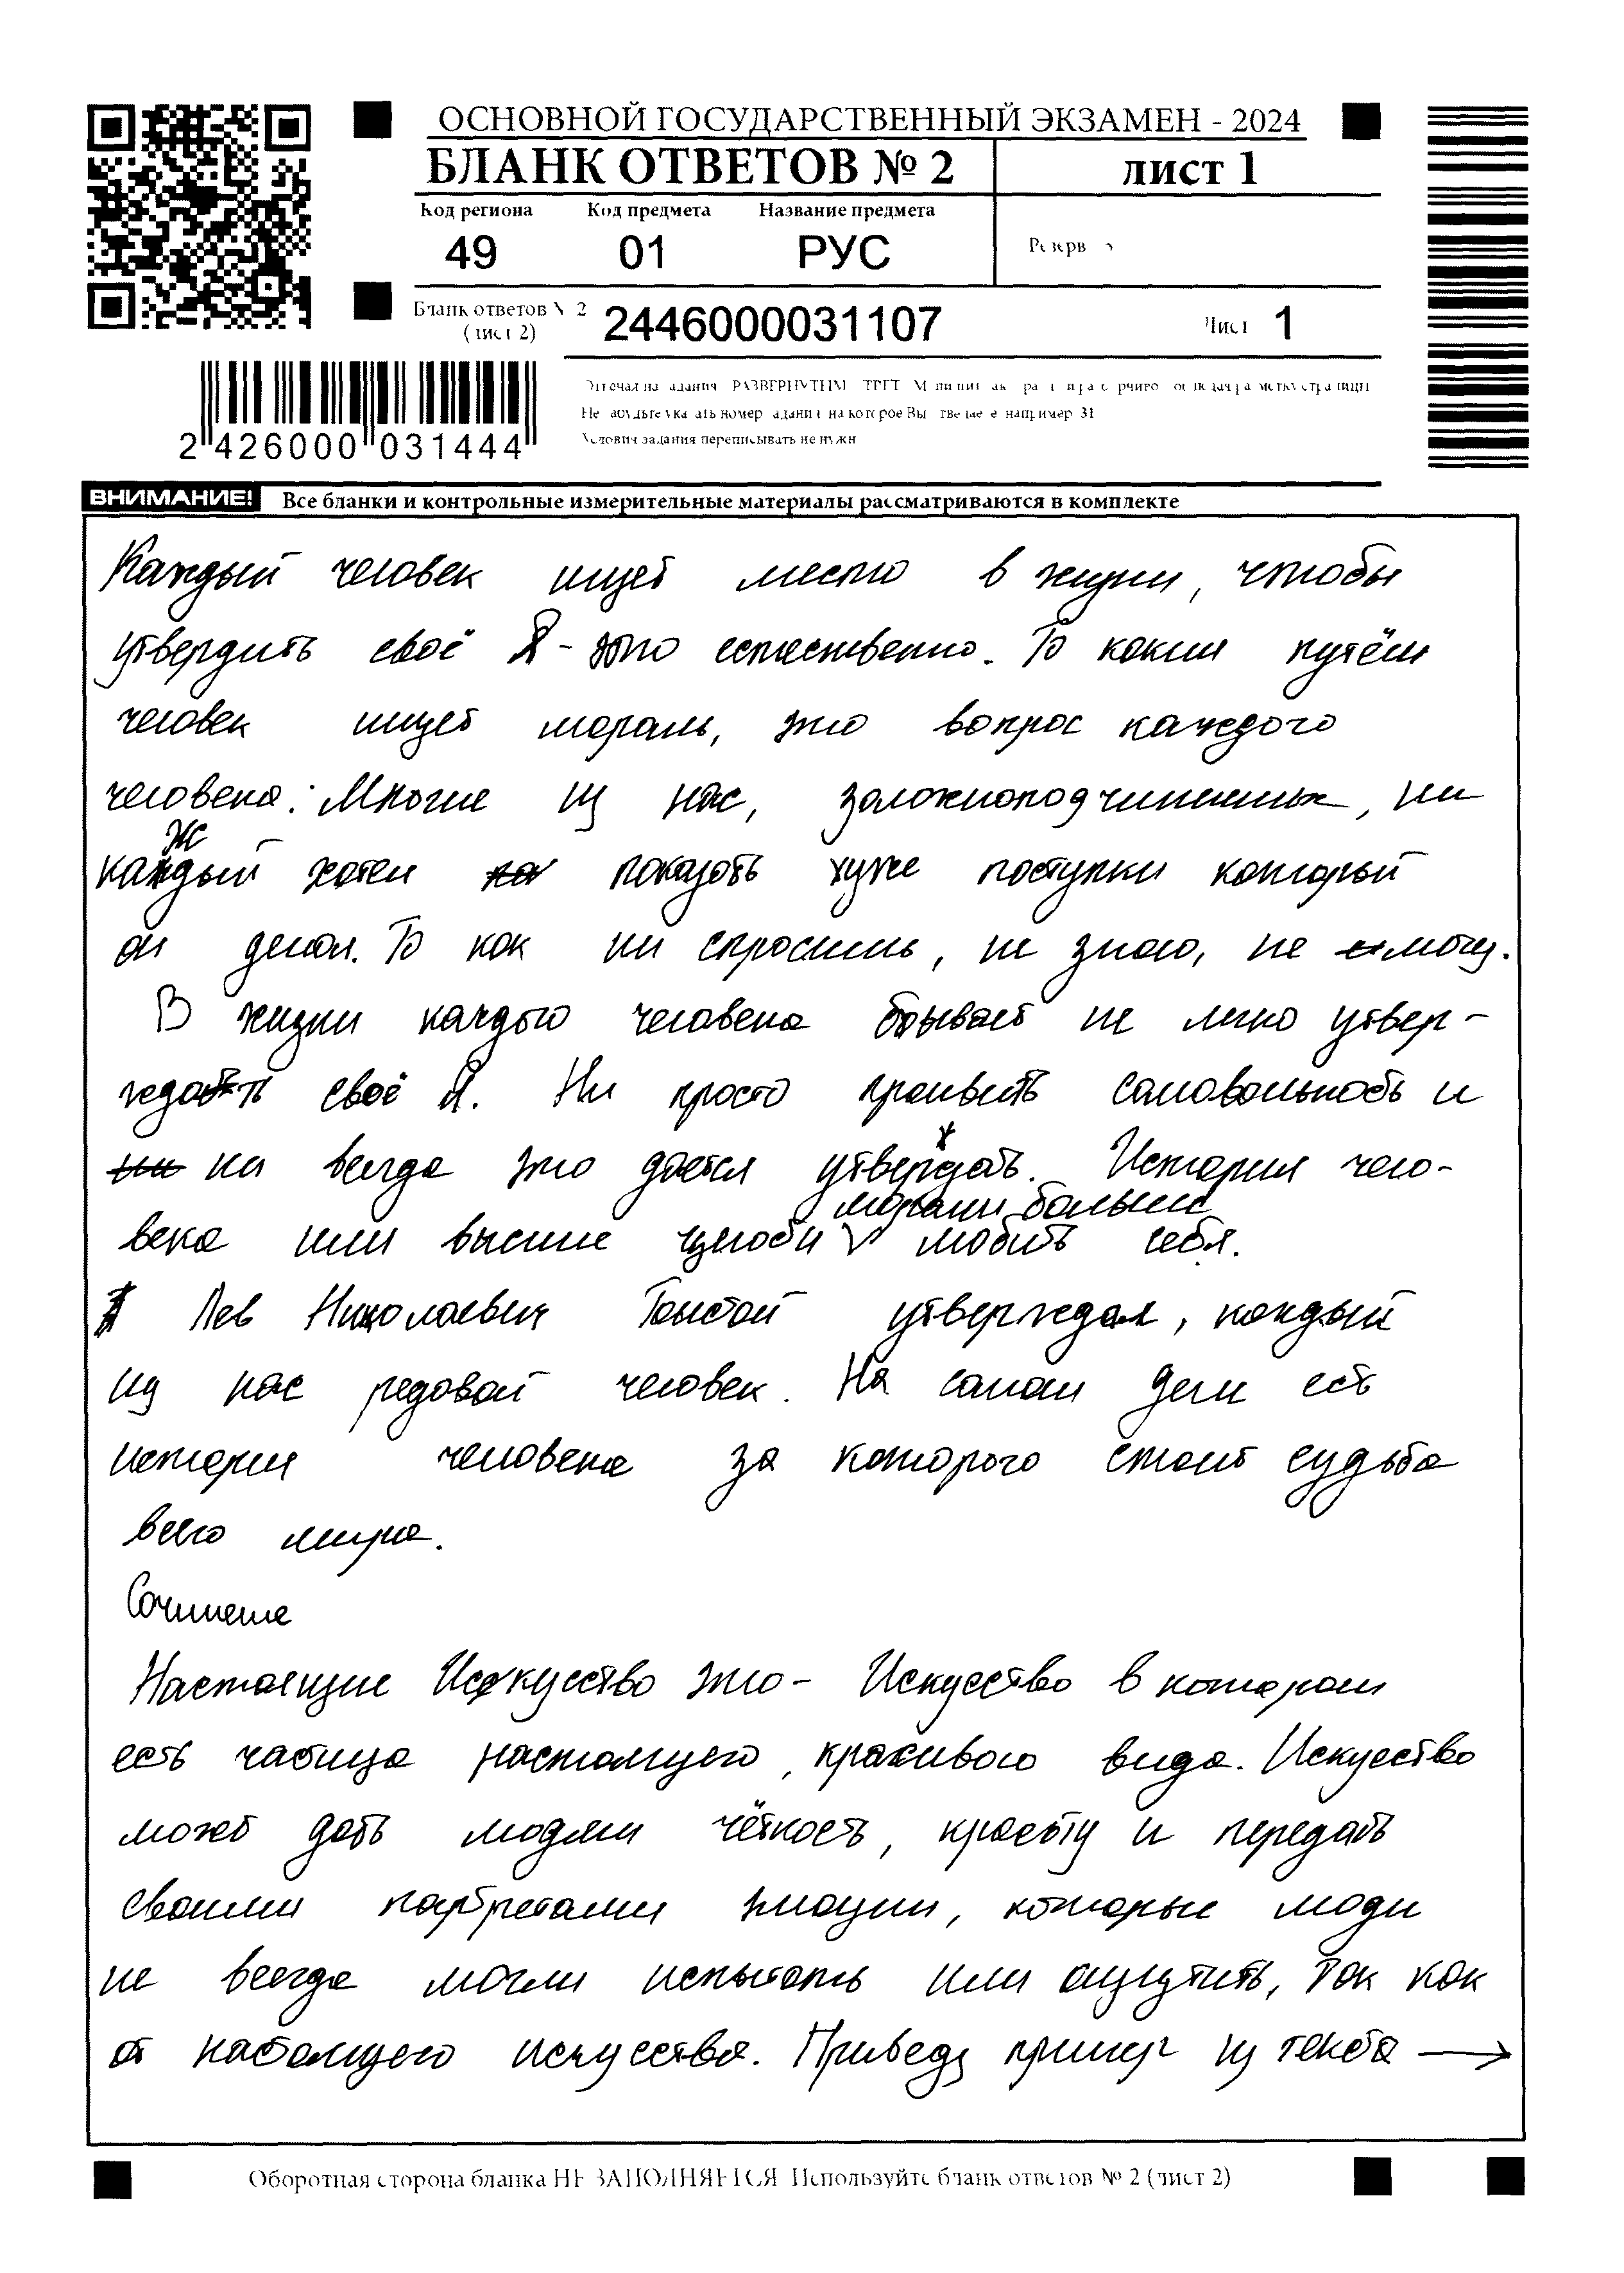 ОСНОВНОЙ ГОСУДАРСТВЕННЫЙ ЭКЗАМЕН - 2024
БЛАНК ОТВЕТОВ № 2
ЛИСТ 1
Код региона Код предмета Название предмета
49 01 РУС
Резерв
Бланк ответов № 2
(лист 2)
2446000031107
Лист 1
2 426000 031444
Условия задания переписывать не нужн
ВНИМАНИЕ! Все бланки и контрольные измерительные материалы рассматриваются в комплекте
Каждый человек ищет место в жизни, чтобы
утвердить своё Я - это естественно. То каким путём
человек ищет мораль, это вопрос каждого
человека. Многие из нас, ни
каждый хотел показать хуже поступки который
он делал. То как ни спросишь, не знаю, не могу.
В жизни каждого человека бывает не легко утвер-
ждать своё Я. Ни просто проивить самовольность и
ни всегда это даётся утверждать. История чело-
века или высшие морали больше любить себя.
Лев Николаевич Толстой утверждал, каждый
из нас редовой человек. На самом деле есть
история человека за которого стоит судьба
всего мира.
Сочинение
Настоящие Искуство это - Искусство в котором
есть частица настоящего, красивого вида. Искусство
может дать людям чёткость, красоту и передать
своими партретами эмоции, которые люди
не всегда могли испытать или ощутить, так как
от настоящего искусства. Приведу пример из текста →
Оборотная сторона бланка НЕ ЗАПОЛНЯЕТСЯ Используйте бланк ответов № 2 (лист 2)